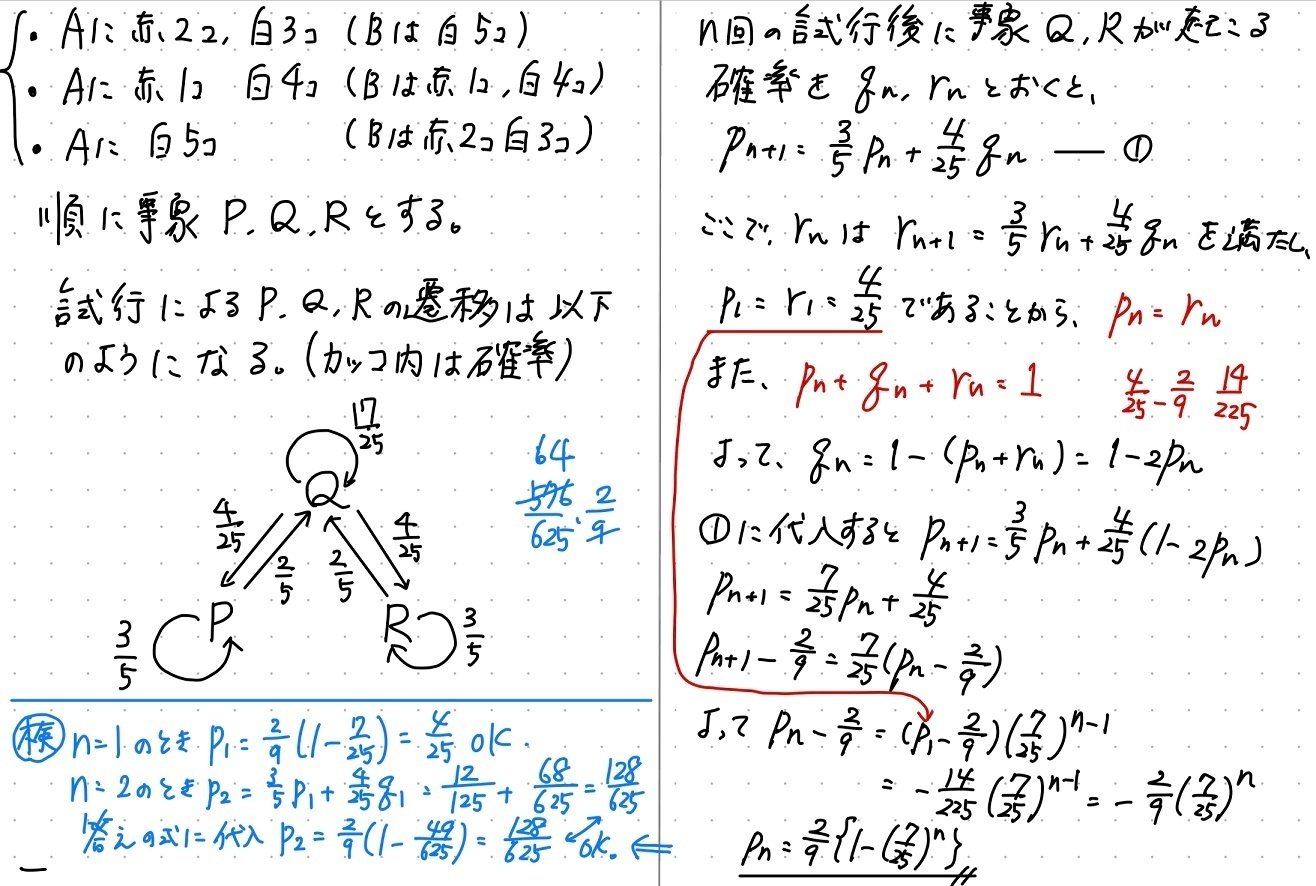 ・Aに赤2コ, 白3コ (Bは白5コ)
・Aに赤1コ 白4コ (Bは赤1コ, 白4コ)
・Aに 白5コ (Bは赤2コ白3コ)
順に事象 P, Q, R とする。
試行による P, Q, R の遷移は以下
のようになる。(カッコ内は確率)
17/25
Q
4/25 2/5 2/5 4/25
P R
3/5 3/5
64
576/625・2/9
検 n=1のとき p₁ = 2/9(1-7/25) = 4/25 ok.
n=2のとき p₂ = 3/5 p₁ + 4/25 q₁ = 12/125 + 68/625 = 128/625
答えの式に代入 p₂ = 2/9(1-49/625) = 128/625 ok. ⇐
n回の試行後に事象 Q, R が起こる
確率を qₙ, rₙ とおくと、
pₙ₊₁ = 3/5 pₙ + 4/25 qₙ — ①
ここで, rₙ は rₙ₊₁ = 3/5 rₙ + 4/25 qₙ を満たし、
p₁ = r₁ = 4/25 であることから、 pₙ = rₙ
また、 pₙ + qₙ + rₙ = 1 4/25 - 2/9 14/225
よって、 qₙ = 1 - (pₙ + rₙ) = 1 - 2pₙ
①に代入すると pₙ₊₁ = 3/5 pₙ + 4/25 (1 - 2pₙ)
pₙ₊₁ = 7/25 pₙ + 4/25
pₙ₊₁ - 2/9 = 7/25 (pₙ - 2/9)
よって pₙ - 2/9 = (p₁ - 2/9)(7/25)ⁿ⁻¹
= - 14/225 (7/25)ⁿ⁻¹ = - 2/9 (7/25)ⁿ
pₙ = 2/9 {1 - (7/25)ⁿ}